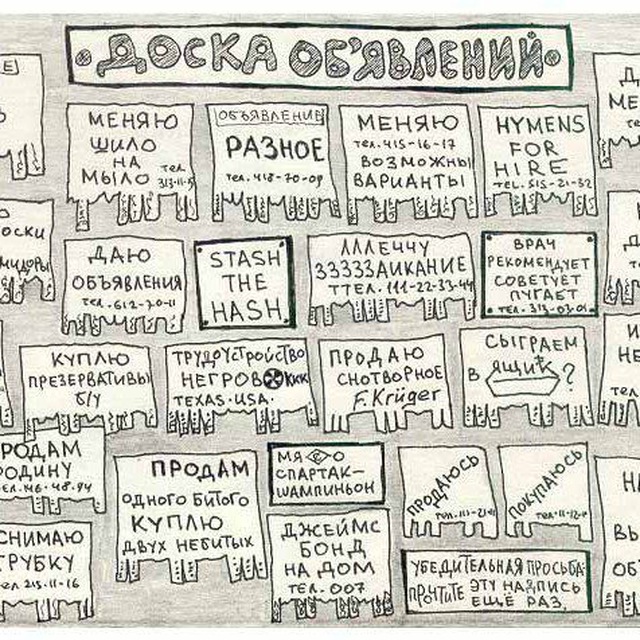 ДОСКА ОБ'ЯВЛЕНИЙ
МЕНЯЮ
ШИЛО
НА
МЫЛО
тел.
313-11-5
ОБЪЯВЛЕНИЕ
РАЗНОЕ
тел. 418-70-09
МЕНЯЮ
тел. 415-16-17
ВОЗМОЖНЫ
ВАРИАНТЫ
HYMENS
FOR
HIRE
TEL. 515-21-32
ДАЮ
ОБЪЯВЛЕНИЯ
тел. 612-70-11
STASH
THE
HASH
ЛЛЛЕЧЧУ
ЗЗЗЗЗАИКАНИЕ
ТТЕЛ. 111-22-33-44
ВРАЧ
РЕКОМЕНДУЕТ
СОВЕТУЕТ
ПУГАЕТ
ТЕЛ. 313-03-01
КУПЛЮ
ПРЕЗЕРВАТИВЫ
Б/У
ТРУДОУСТРОЙСТВО
НЕГРОВ ККК
TEXAS. USA.
ПРОДАЮ
СНОТВОРНОЕ
F. Krüger
СЫГРАЕМ
В ЯЩИК ?
РОДАМ
ОДИНУ
ЕЛ. 46-48-94
ПРОДАМ
ОДНОГО БИТОГО
КУПЛЮ
ДВУХ НЕБИТЫХ
МЯСО
СПАРТАК-
ШАМПИНЬОН
ПРОДАЮСЬ
тел. 111-21-11
ПОКУПАЮСЬ
СНИМАЮ
ТРУБКУ
ел 215-11-16
ДЖЕЙМС
БОНД
НА ДОМ
ТЕЛ. 007
УБЕДИТЕЛЬНАЯ ПРОСЬБА:
ПРОЧТИТЕ ЭТУ НАДПИСЬ
ЕЩЁ РАЗ.